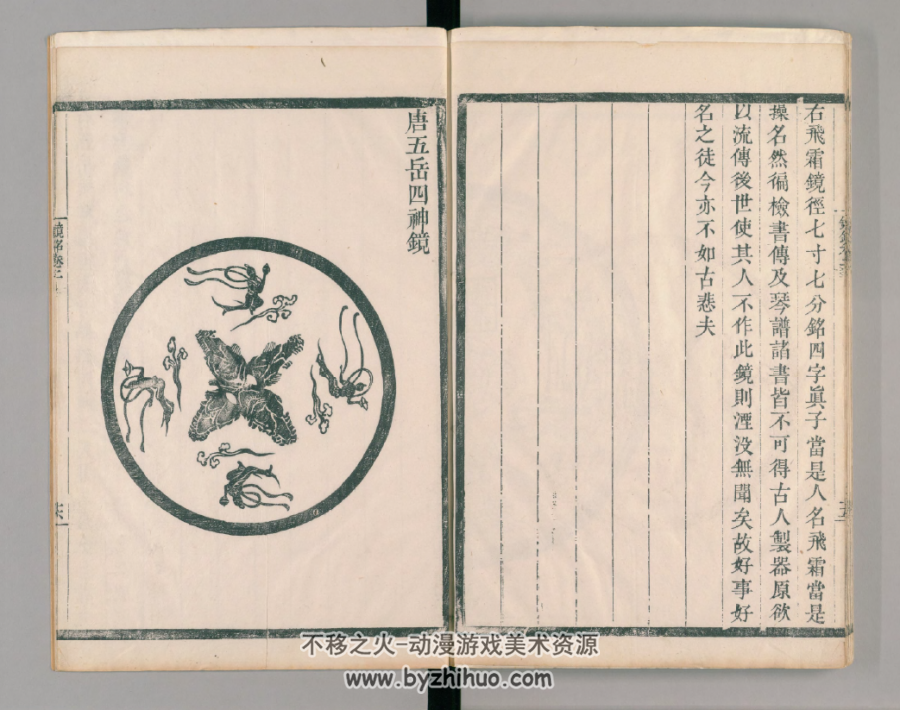 右飛霜鏡徑七寸七分銘四字真子當是人名飛霜當是
操名然徧檢書傳及琴譜諸書皆不可得古人製器原欲
以流傳後世使其人不作此鏡則湮没無聞矣故好事好
名之徒今亦不如古悲夫
唐五岳四神鏡
不移之火-动漫游戏美术资源
www.byzhihuo.com